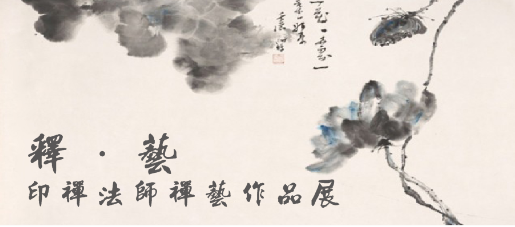 釋·藝
印禪法師禪藝作品展